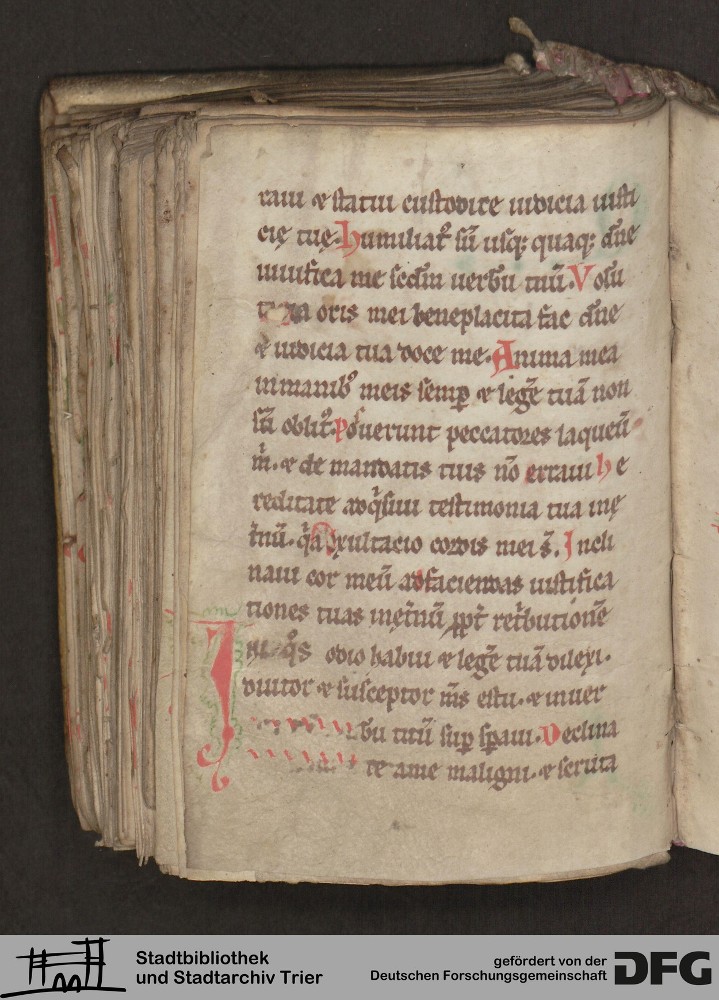 raui ⁊ statui custodire iudicia iusti
cię tuę. Humiliat᷑ sū usq; quaq; dn̄e
uiuifica me scdm̄ uerbū tuū. Volū
oris mei beneplacita fac dn̄e
⁊ iudicia tua doce me. Anima mea
in manibꝰ meis semp̲ ⁊ legē tuā non
sū oblitꝰ. Posuerunt peccatores laqueū
m̄. ⁊ de mandatis tuis nō erraui he
reditate adq̄siui testimonia tua inę
t̄nū. q̄a exultacio cordis mei s̄. Incli
naui cor meū ad faciendas iustifica
tiones tuas inęt̄nū ꝓpt̄ ret̄butionē
Iniqͦs odio habui ⁊ legē tuā dilexi.
diutor ⁊ susceptor m̄s es tu. ⁊ in uer
bū tuū sup̲ sp̲aui. Declina
te a me maligni. ⁊ scruta
Stadtbibliothek
und Stadtarchiv Trier
gefördert von der
Deutschen Forschungsgemeinschaft
DFG